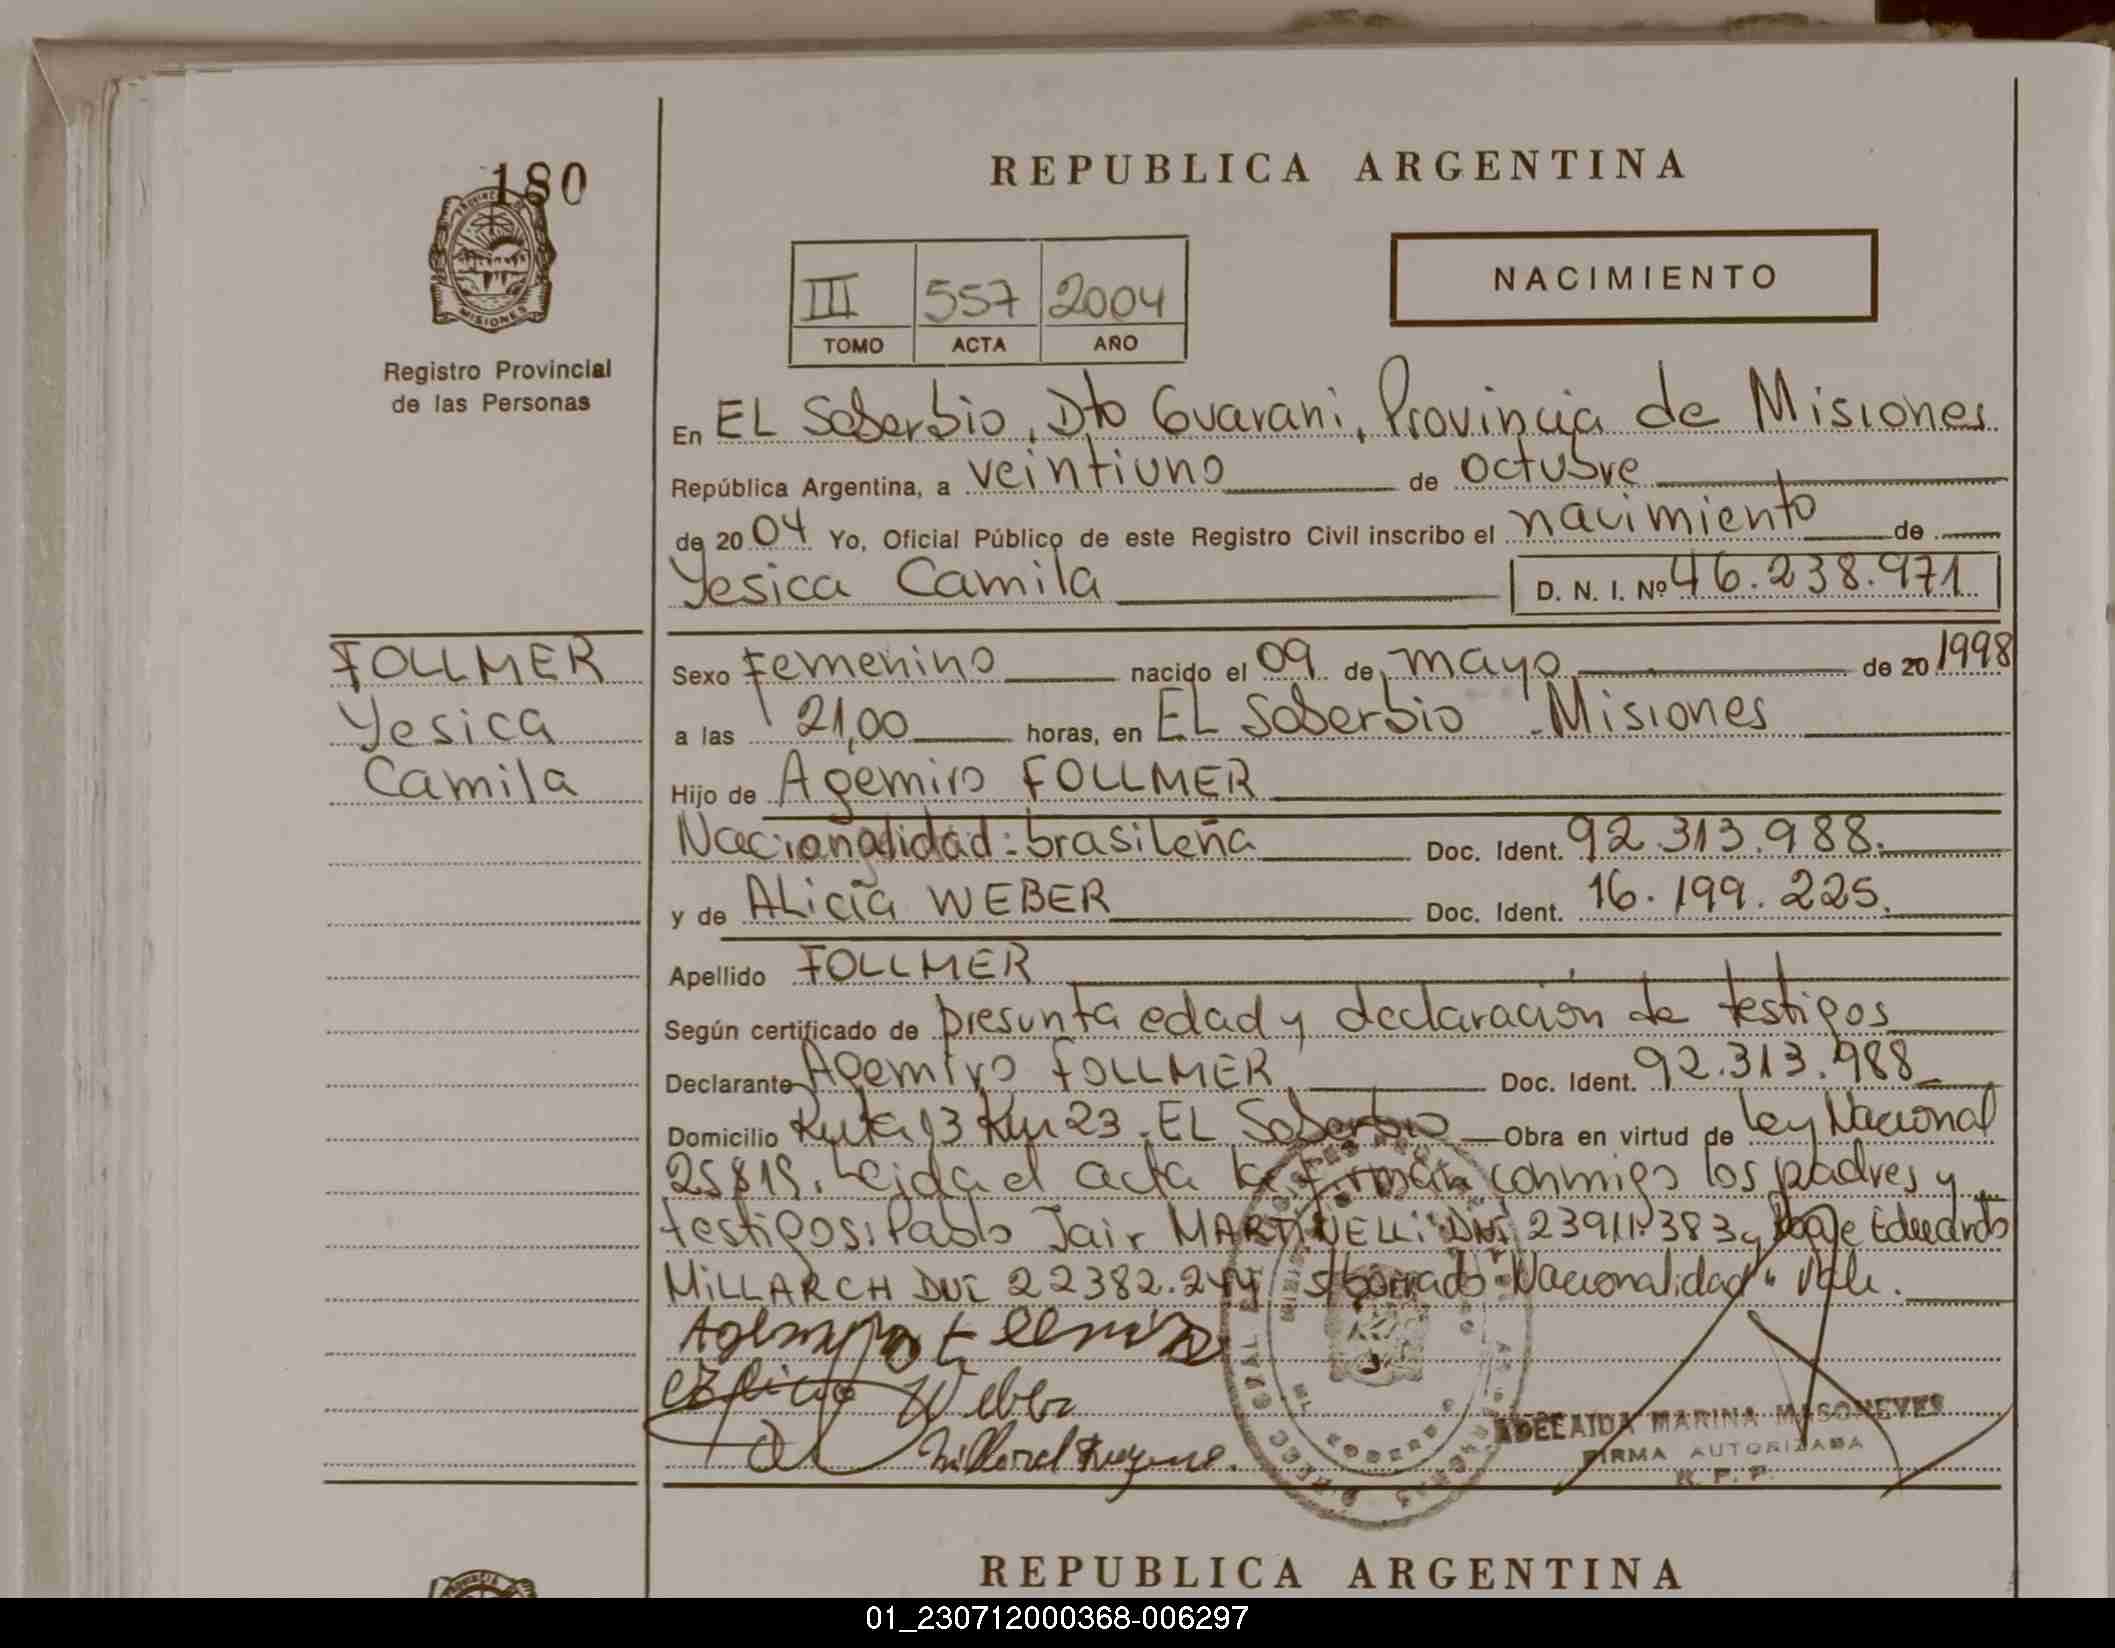 180
REPUBLICA ARGENTINA
NACIMIENTO
III 557 2004
TOMO ACTA AÑO
PROVINCIA DE MISIONES
Registro Provincial
de las Personas
En EL Soberbio, Dto Guarani, Provincia de Misiones
República Argentina, a veintiuno de octubre
de 2004 Yo, Oficial Público de este Registro Civil inscribo el nacimiento de
Yesica Camila D. N. I. Nº 46.238.971
FOLLMER
Yesica
Camila
Sexo Femenino nacido el 09 de mayo de 20 1998
a las 21,00 horas, en EL Soberbio - Misiones
Hijo de Agemiro FOLLMER
Nacionalidad: brasileña Doc. Ident. 92.313.988.
y de ALicia WEBER Doc. Ident. 16.199.225.
Apellido FOLLMER
Según certificado de presunta edad y declaración de testigos
Declarante Agemiro FOLLMER Doc. Ident. 92.313.988
Domicilio Ruta 13 Km 23. EL Soberbio Obra en virtud de Ley Nacional
25819. Leida el acta la firman conmigo los padres y
testigos: Pablo Jair MARTINELLI DNI 23911.383 y Eduardo
MILLARCH DNI 22382.244 s/borrado "Nacionalidad" Vale.
Weber
ADELAIDA MARINA MASONEVES
FIRMA AUTORIZADA
R. P. P.
REPUBLICA ARGENTINA
01_230712000368-006297